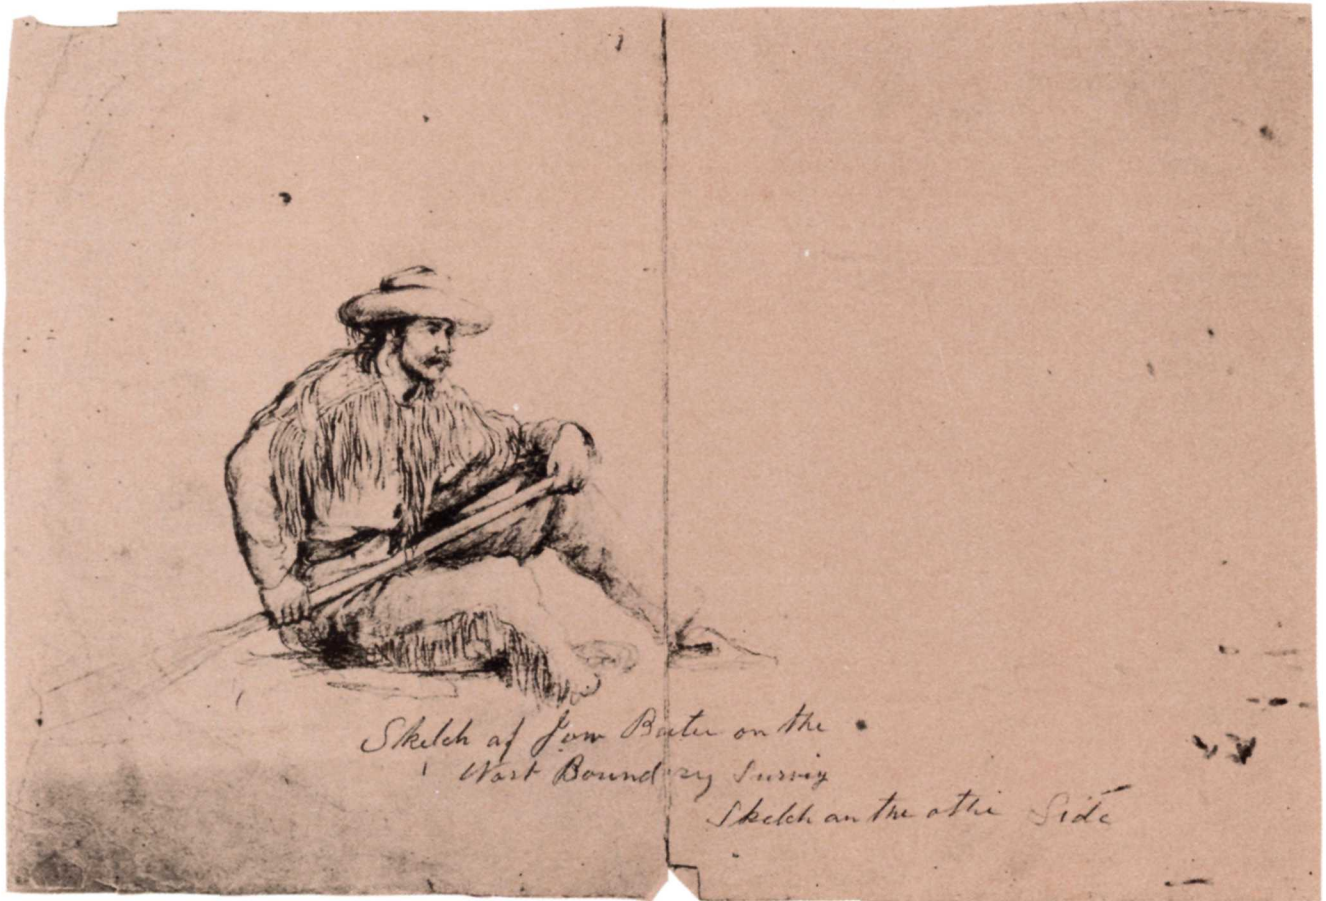 Sketch of Jim Baker on the
West Boundary Survey
Sketch on the othe Side